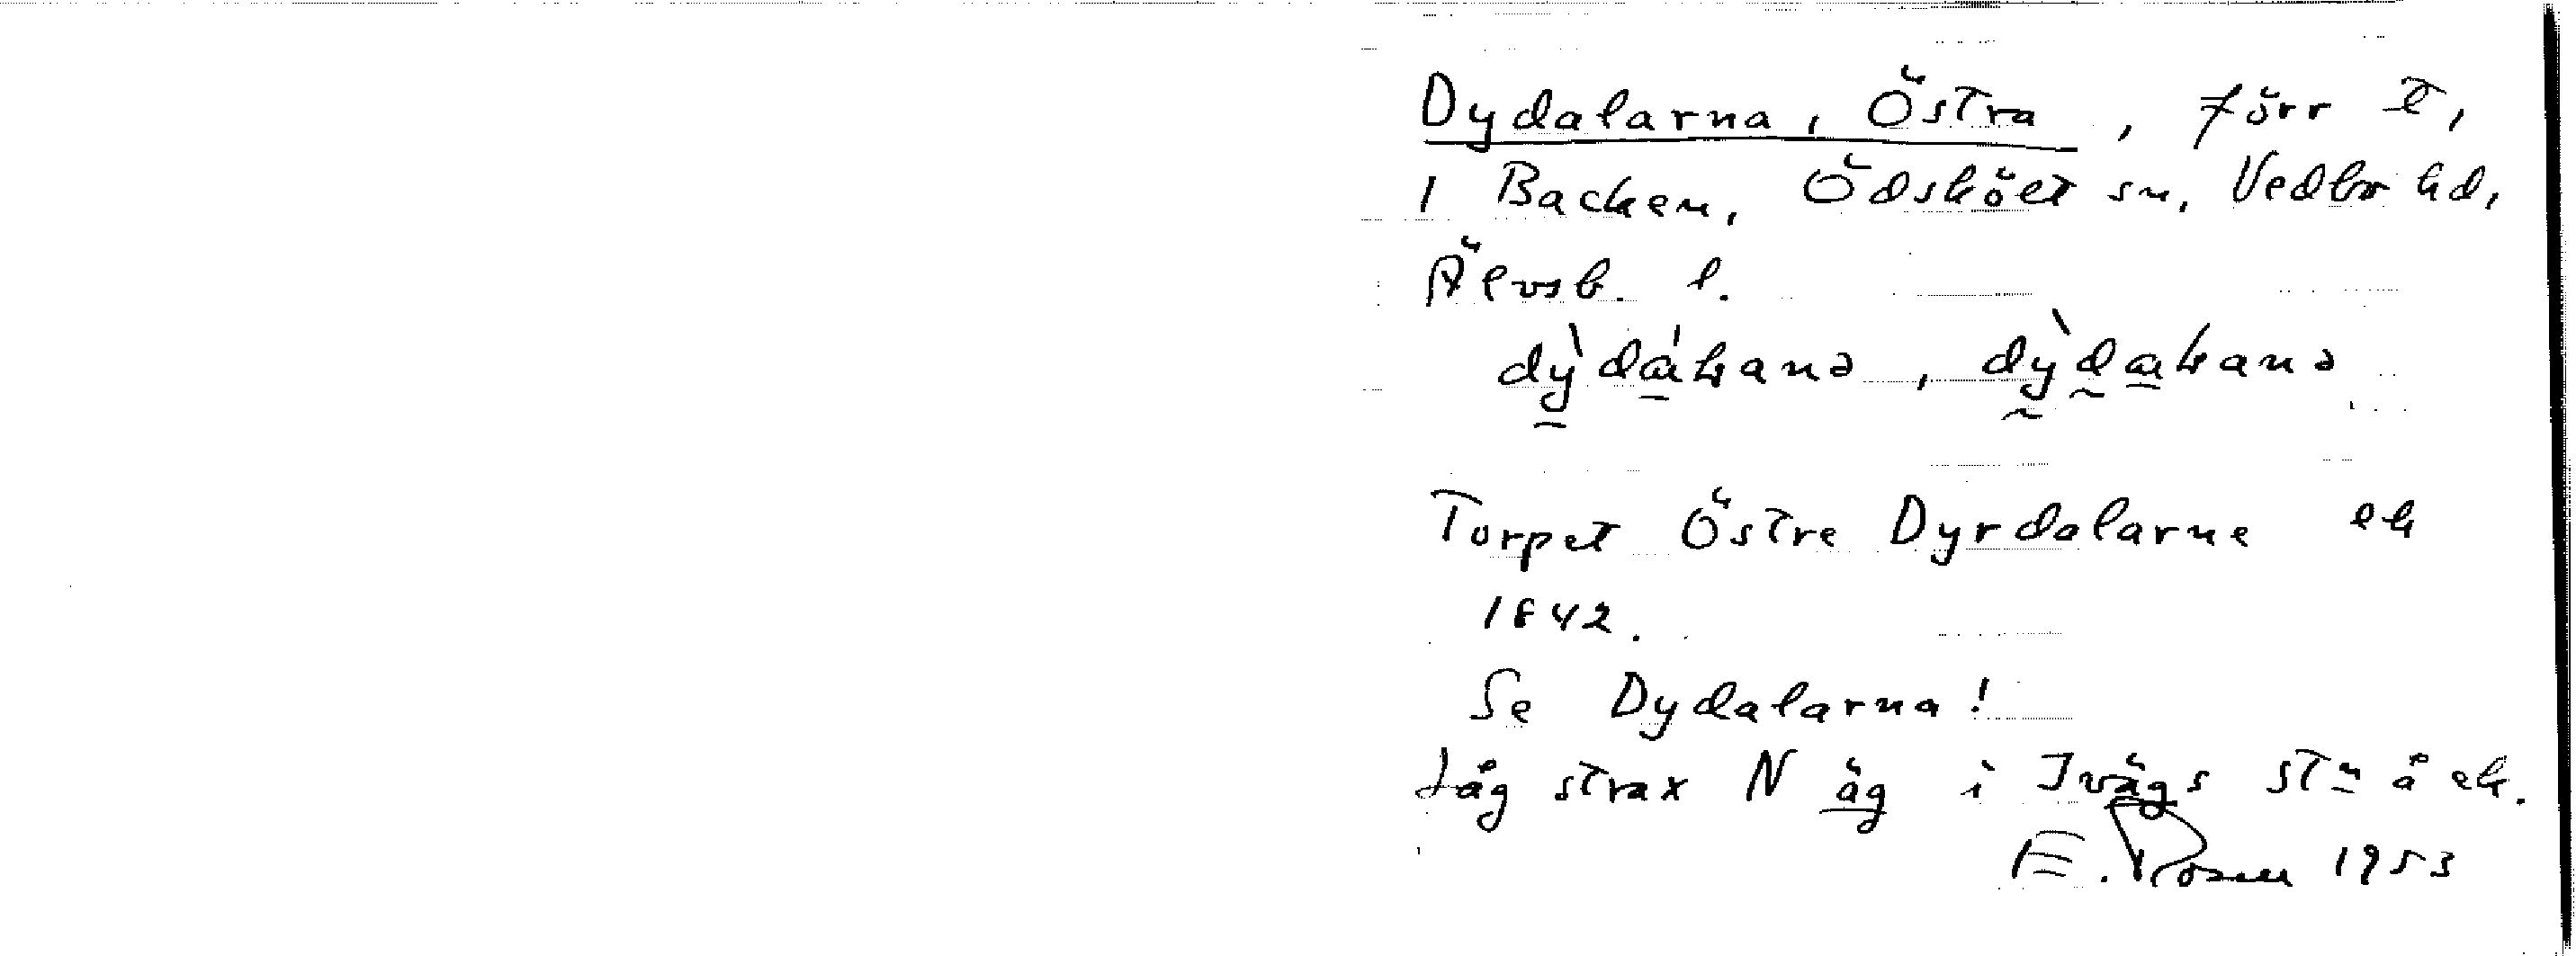 Dydalarna, Östra, förr t,
1 Backen, Ödskölt sn, Vedbo hd,
Älvsb. l.
dỳdáɫanə, dỳdaɫanə
Torpet Östre Dyrdalarne ek
1842.
Se Dydalarna!
Låg strax N äg i Ivägs st̲n å ek.
E. Rosell 1953